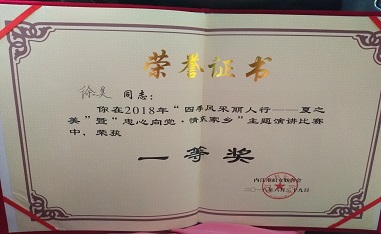 荣誉证书
徐昊 同志：
你在2018年“四季风采丽人行——夏之
美”暨“忠心向党·情系家乡”主题演讲比赛
中，荣获
一等奖
内江市妇女联合会
二〇一八年六月二十九日